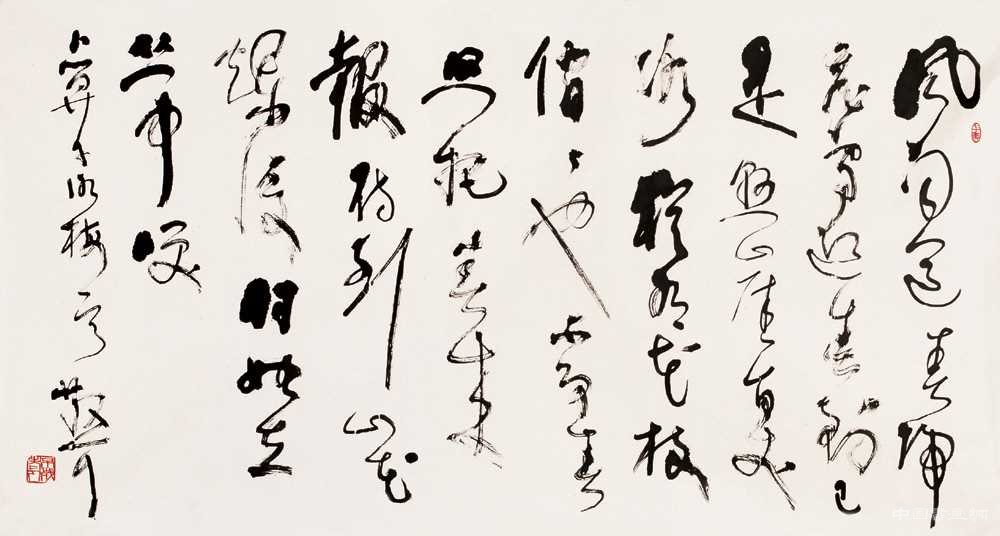 風雨送春歸
飛雪迎春到已
是懸崖百丈
冰猶有花枝
俏々也不争春
只把春来
報待到山花
爛漫時她在
丛中笑
卜算子咏梅